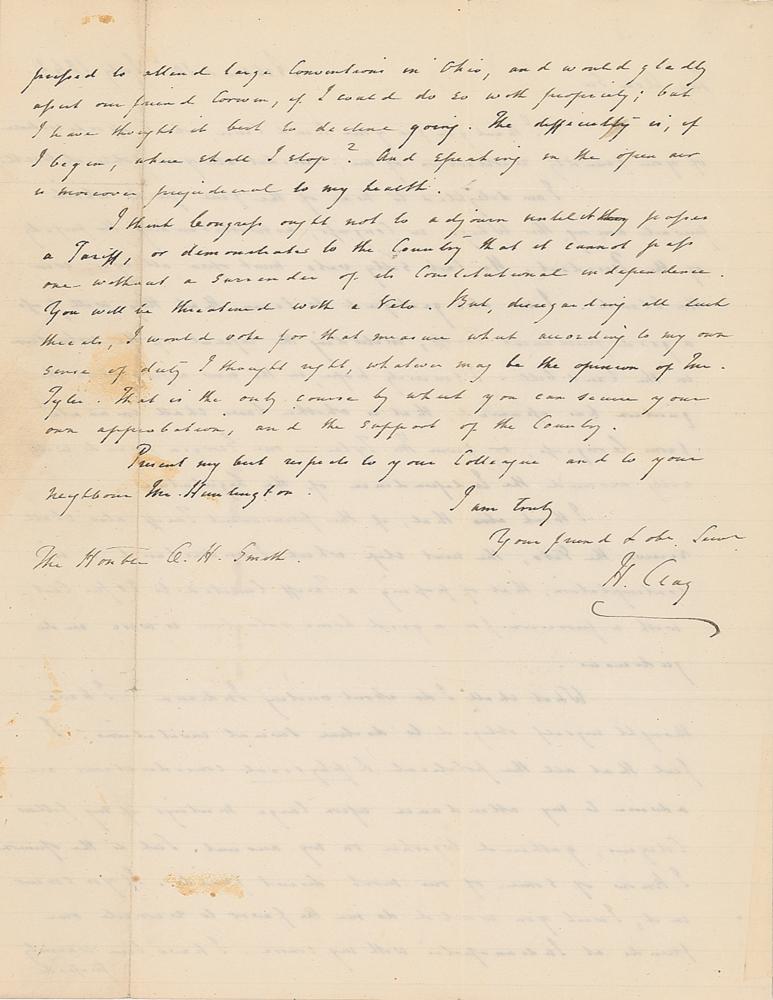 pressed to attend large Conventions in Ohio, and would gladly
assist our friend Corwin, if I could do so with propriety; but
I have thought it best to decline going. The difficulty is, if
I begin, where shall I stop? And speaking in the open air
is moreover prejudicial to my health.
I think Congress ought not to adjourn until it passes
a Tariff, or demonstrates to the Country that it cannot pass
one without a surrender of its Constitutional independence.
You will be threatened with a Veto. But, disregarding all such
threats, I would vote for that measure what according to my own
sense of duty I thought right, whatever may be the opinion of Mr.
Tyler. That is the only course by which you can secure your
own approbation, and the support of the Country.
Present my best respects to your Colleague and to your
neighbour Mr. Huntington.
I am truly
Your friend & obt. Servt
H. Clay
The Honble O. H. Smith.